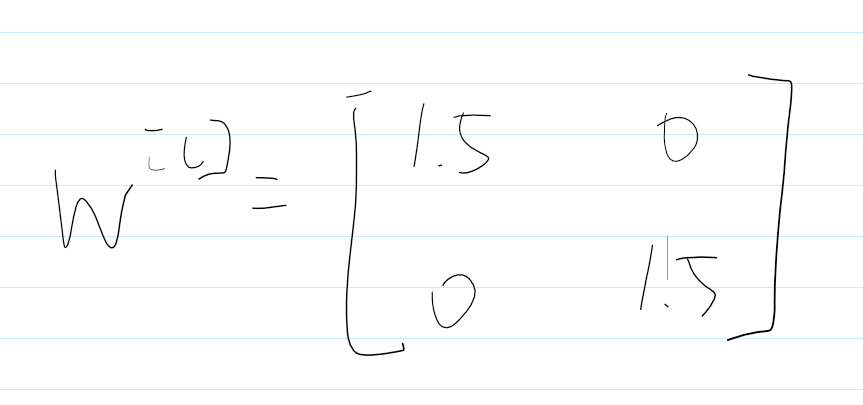 W[l] = [1.5 0
0 1.5]